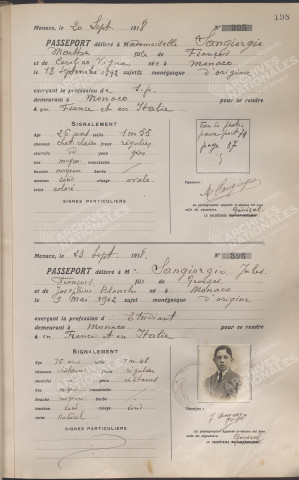 198
Monaco, le 20 Sept 1918 N° 395
PASSEPORT délivré à Mademoiselle Sangiorgio
Marthe fille de François
et de Caroline Vigna née à Monaco
le 18 septembre 1892 sujette monégasque d'origine
exerçant la profession de S.p.
demeurant à Monaco pour se rendre
à en France et en Italie
SIGNALEMENT
Age 26 ans taille 1m55
cheveux chat. clairs front régulier
sourcils id yeux gris
nez moyen moustache
bouche moyenne barbe
menton rond visage ovale
teint coloré
SIGNES PARTICULIERS
page 37
Signature :
La photographie apposée ci-dessus est avec
celle du signataire.
LE SECRÉTAIRE Général
Monaco, le 23 Sept. 1918. N° 396
PASSEPORT délivré à M. Sangiorgio Jules
François fils de Georges
et de Joséphine Blanchi né à Monaco
le 9 Mai 1902 sujet monégasque d'origine
exerçant la profession d' Etudiant
demeurant à Monaco pour se rendre
à en France et en Italie
SIGNALEMENT
Age 16 ans taille 1m.48
cheveux châtains front régulier
sourcils id yeux châtains
nez moyen moustache
bouche moyenne barbe
menton rond visage rond
teint naturel
SIGNES PARTICULIERS
Signature :
J. Sangiorgio
La photographie apposée ci-dessus est avec
celle du signataire.
LE SECRÉTAIRE Général